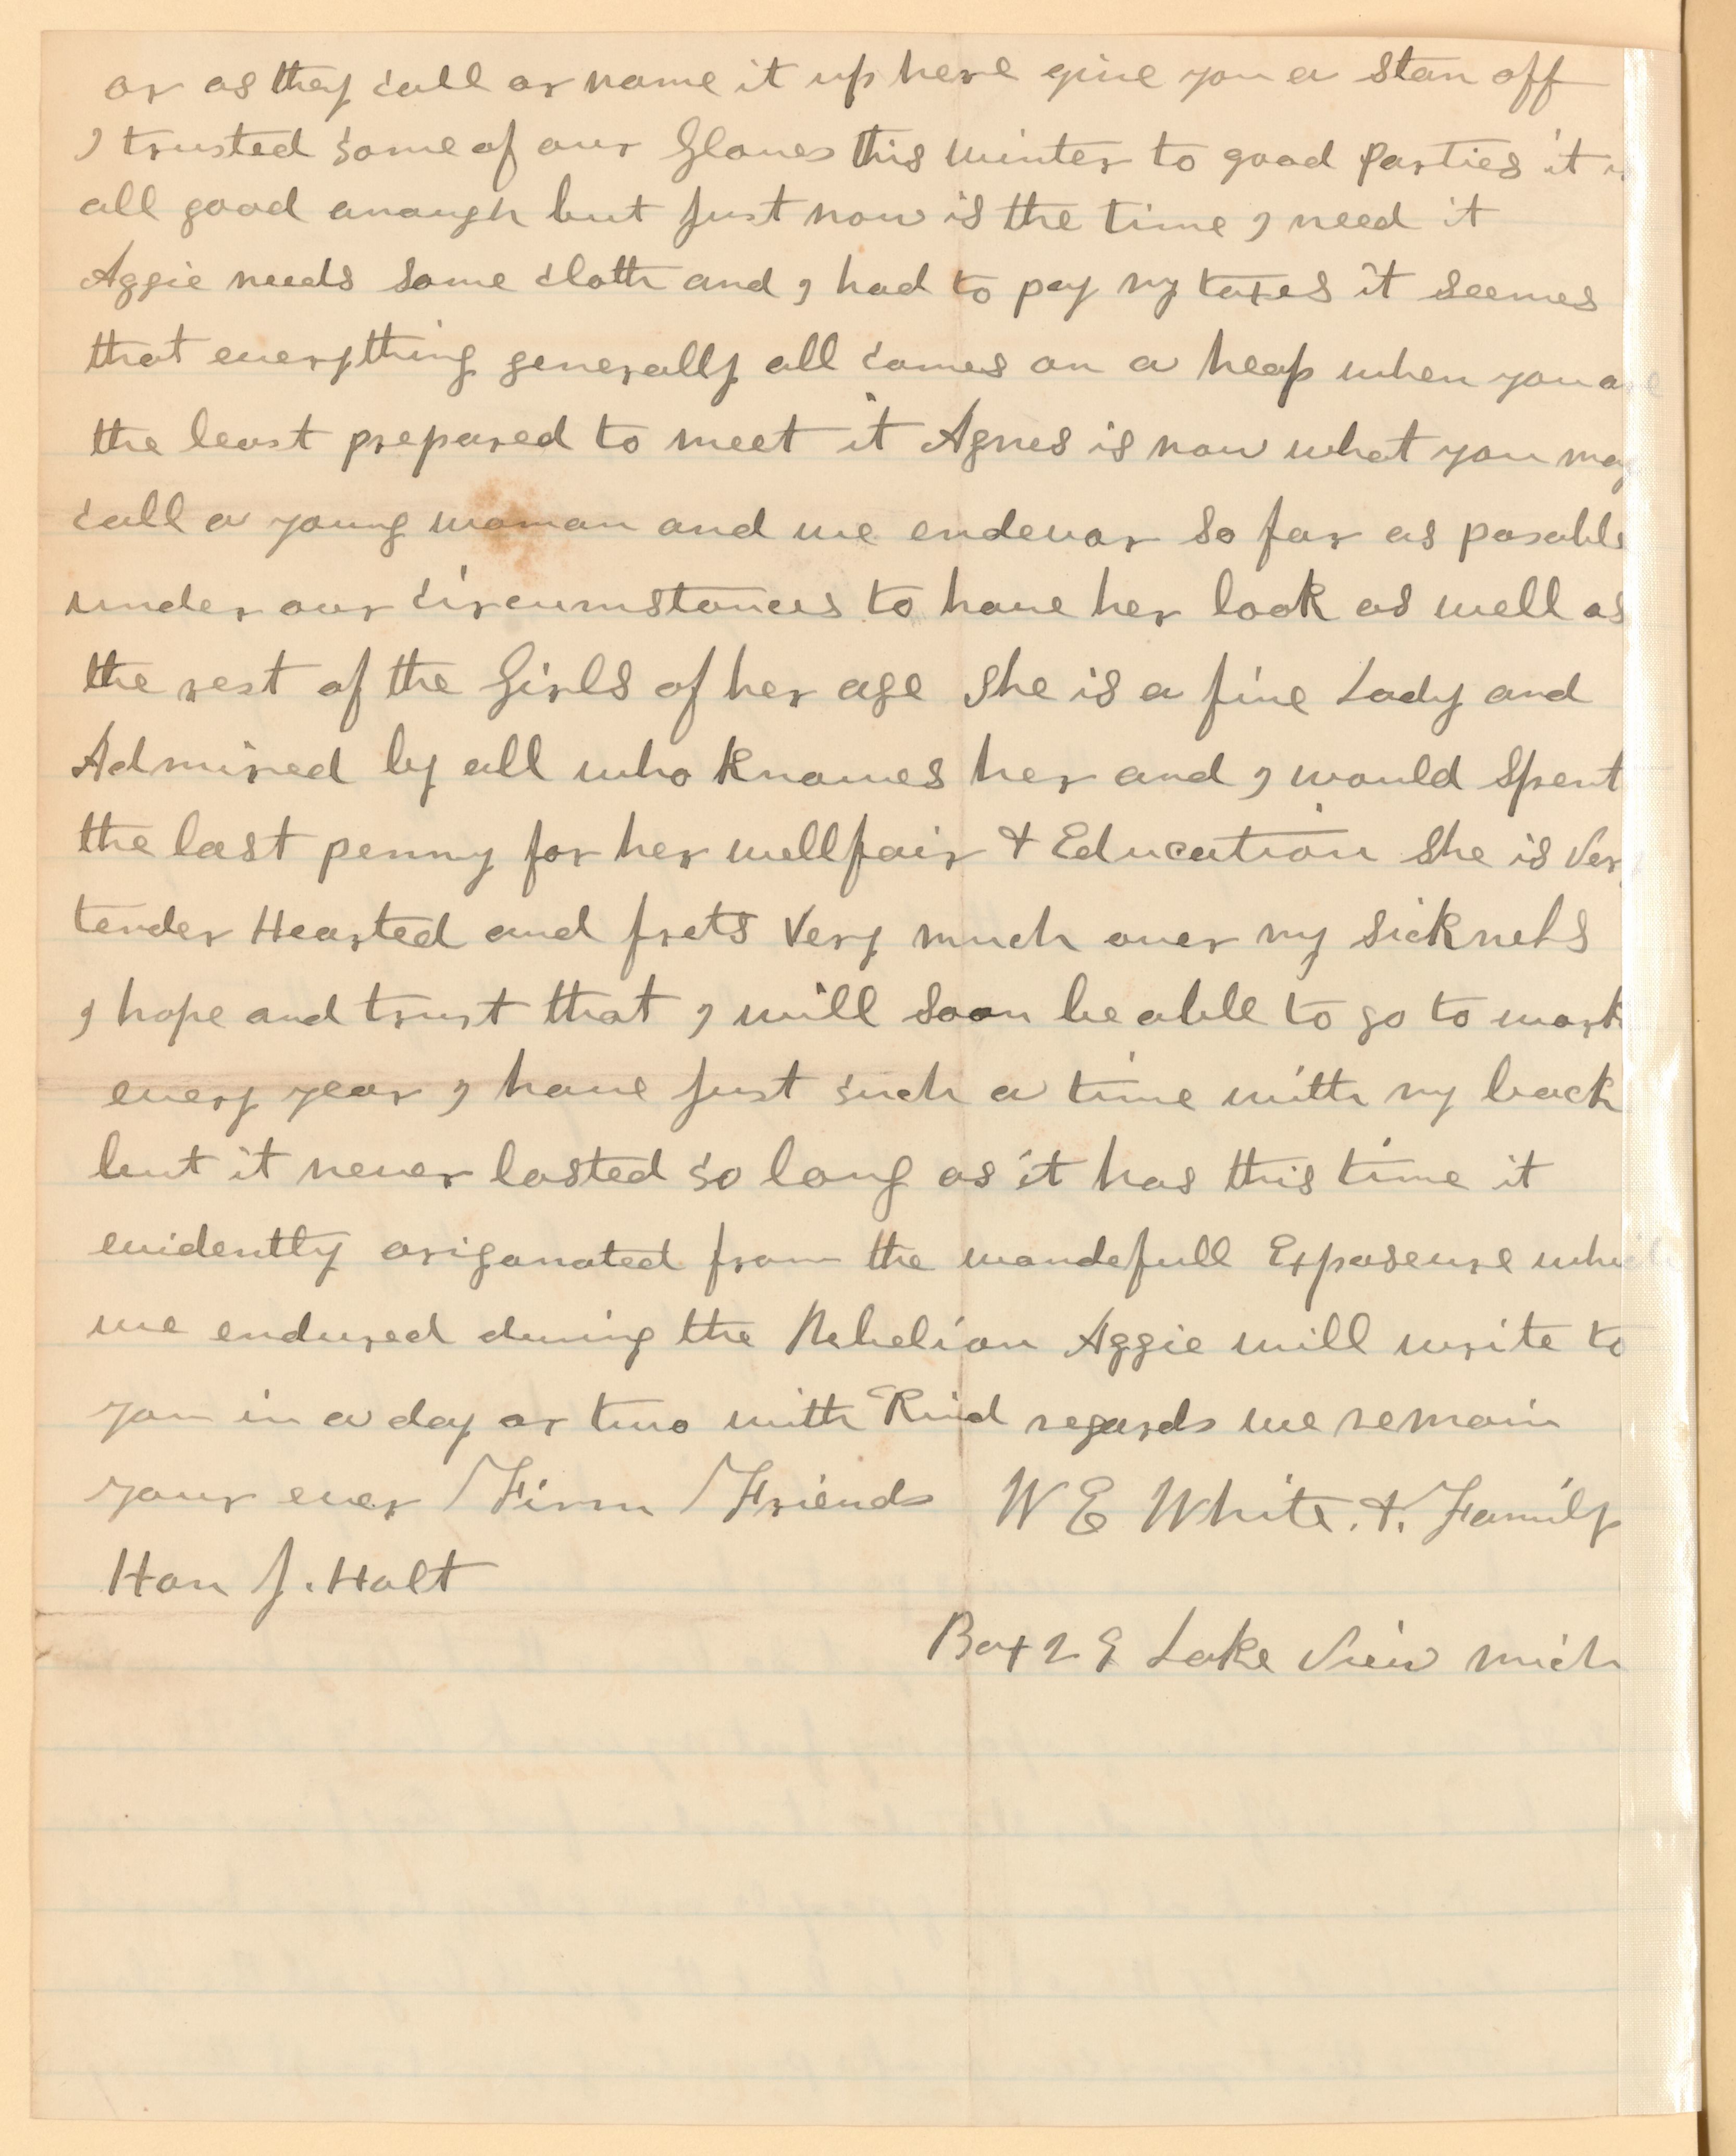 or as they call or name it up here give you a stan off
I trusted some of our Gloves this winter to good parties it is
all good anough but just now is the time I need it
Aggie needs some cloth and I had to pay my taxes it seemes
that everything generally all comes on a heap when you are
the least prepared to meet it Agnes is now what you may
call a young woman and we endevor so far as posable
under our circumstances to have her look as well as
the rest of the Girls of her age She is a fine Lady and
Admired by all who knowes her and I would Spent
the last penny for her wellfair & Education She is Very
tender Hearted and frets Very much over my sickness
I hope and trust that I will soon be able to go to work
every year I have just such a time with my back
but it never lasted so long as it has this time it
evidently origanated from the wondefull Exposeure which
we endured during the Rebelion Aggie will write to
you in a day or two with Kind regards we remain
your ever Firm Friends W E White. &. Family
Hon J. Holt
Box 29 Lake View Mich